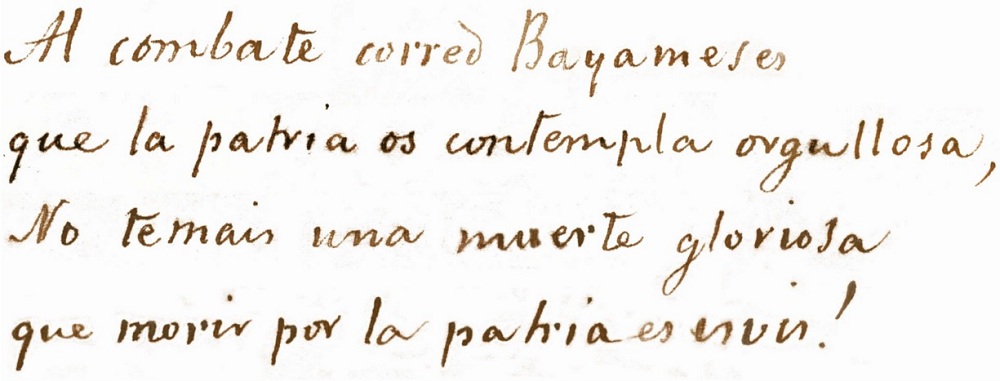 Al combate corred Bayameses
que la patria os contempla orgullosa,
No temais una muerte gloriosa
que morir por la patria es vivir!